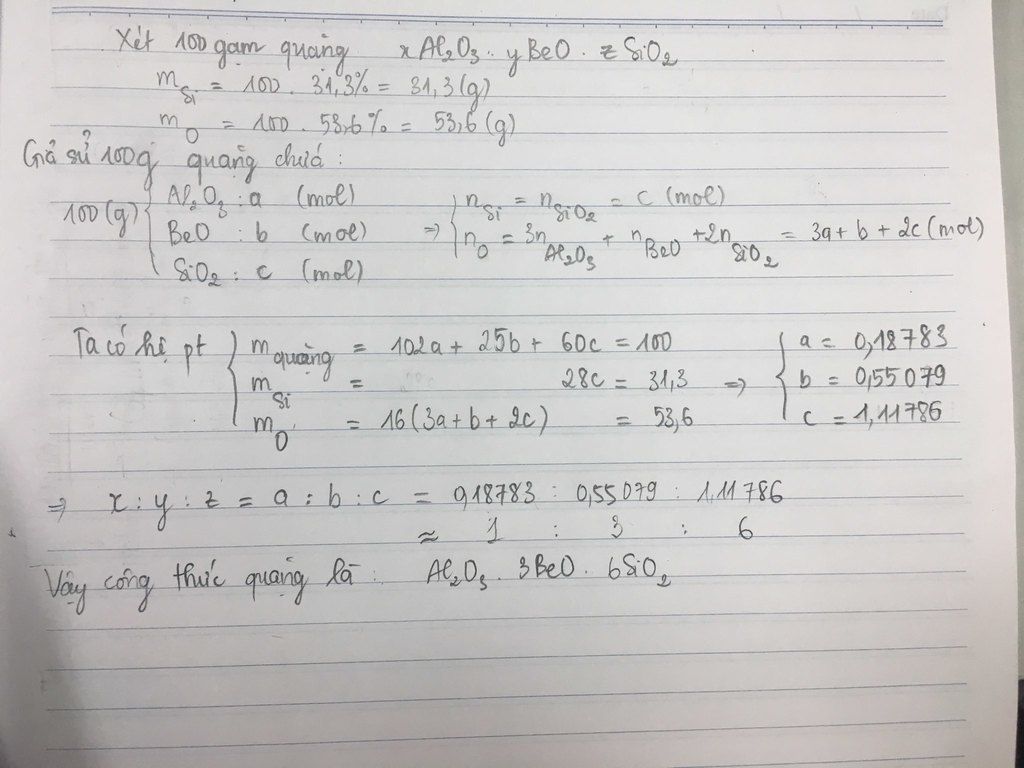 Xét 100 gam quặng xAl₂O₃. yBeO. zSiO₂
m_Si = 100 . 31,3% = 31,3 (g)
m_O = 100 . 53,6% = 53,6 (g)
Giả sử 100g quặng chứa :
100(g) { Al₂O₃ : a (mol)
BeO : b (mol)
SiO₂ : c (mol)
=> { n_Si = n_SiO₂ = c (mol)
n_O = 3n_Al₂O₃ + n_BeO + 2n_SiO₂ = 3a + b + 2c (mol)
Ta có hệ pt { m_quặng = 102a + 25b + 60c = 100
m_Si = 28c = 31,3
m_O = 16(3a + b + 2c) = 53,6
=> { a = 0,18783
b = 0,55079
c = 1,11786
=> x : y : z = a : b : c = 0,18783 : 0,55079 : 1,11786
≈ 1 : 3 : 6
Vậy công thức quặng là : Al₂O₃. 3BeO. 6SiO₂